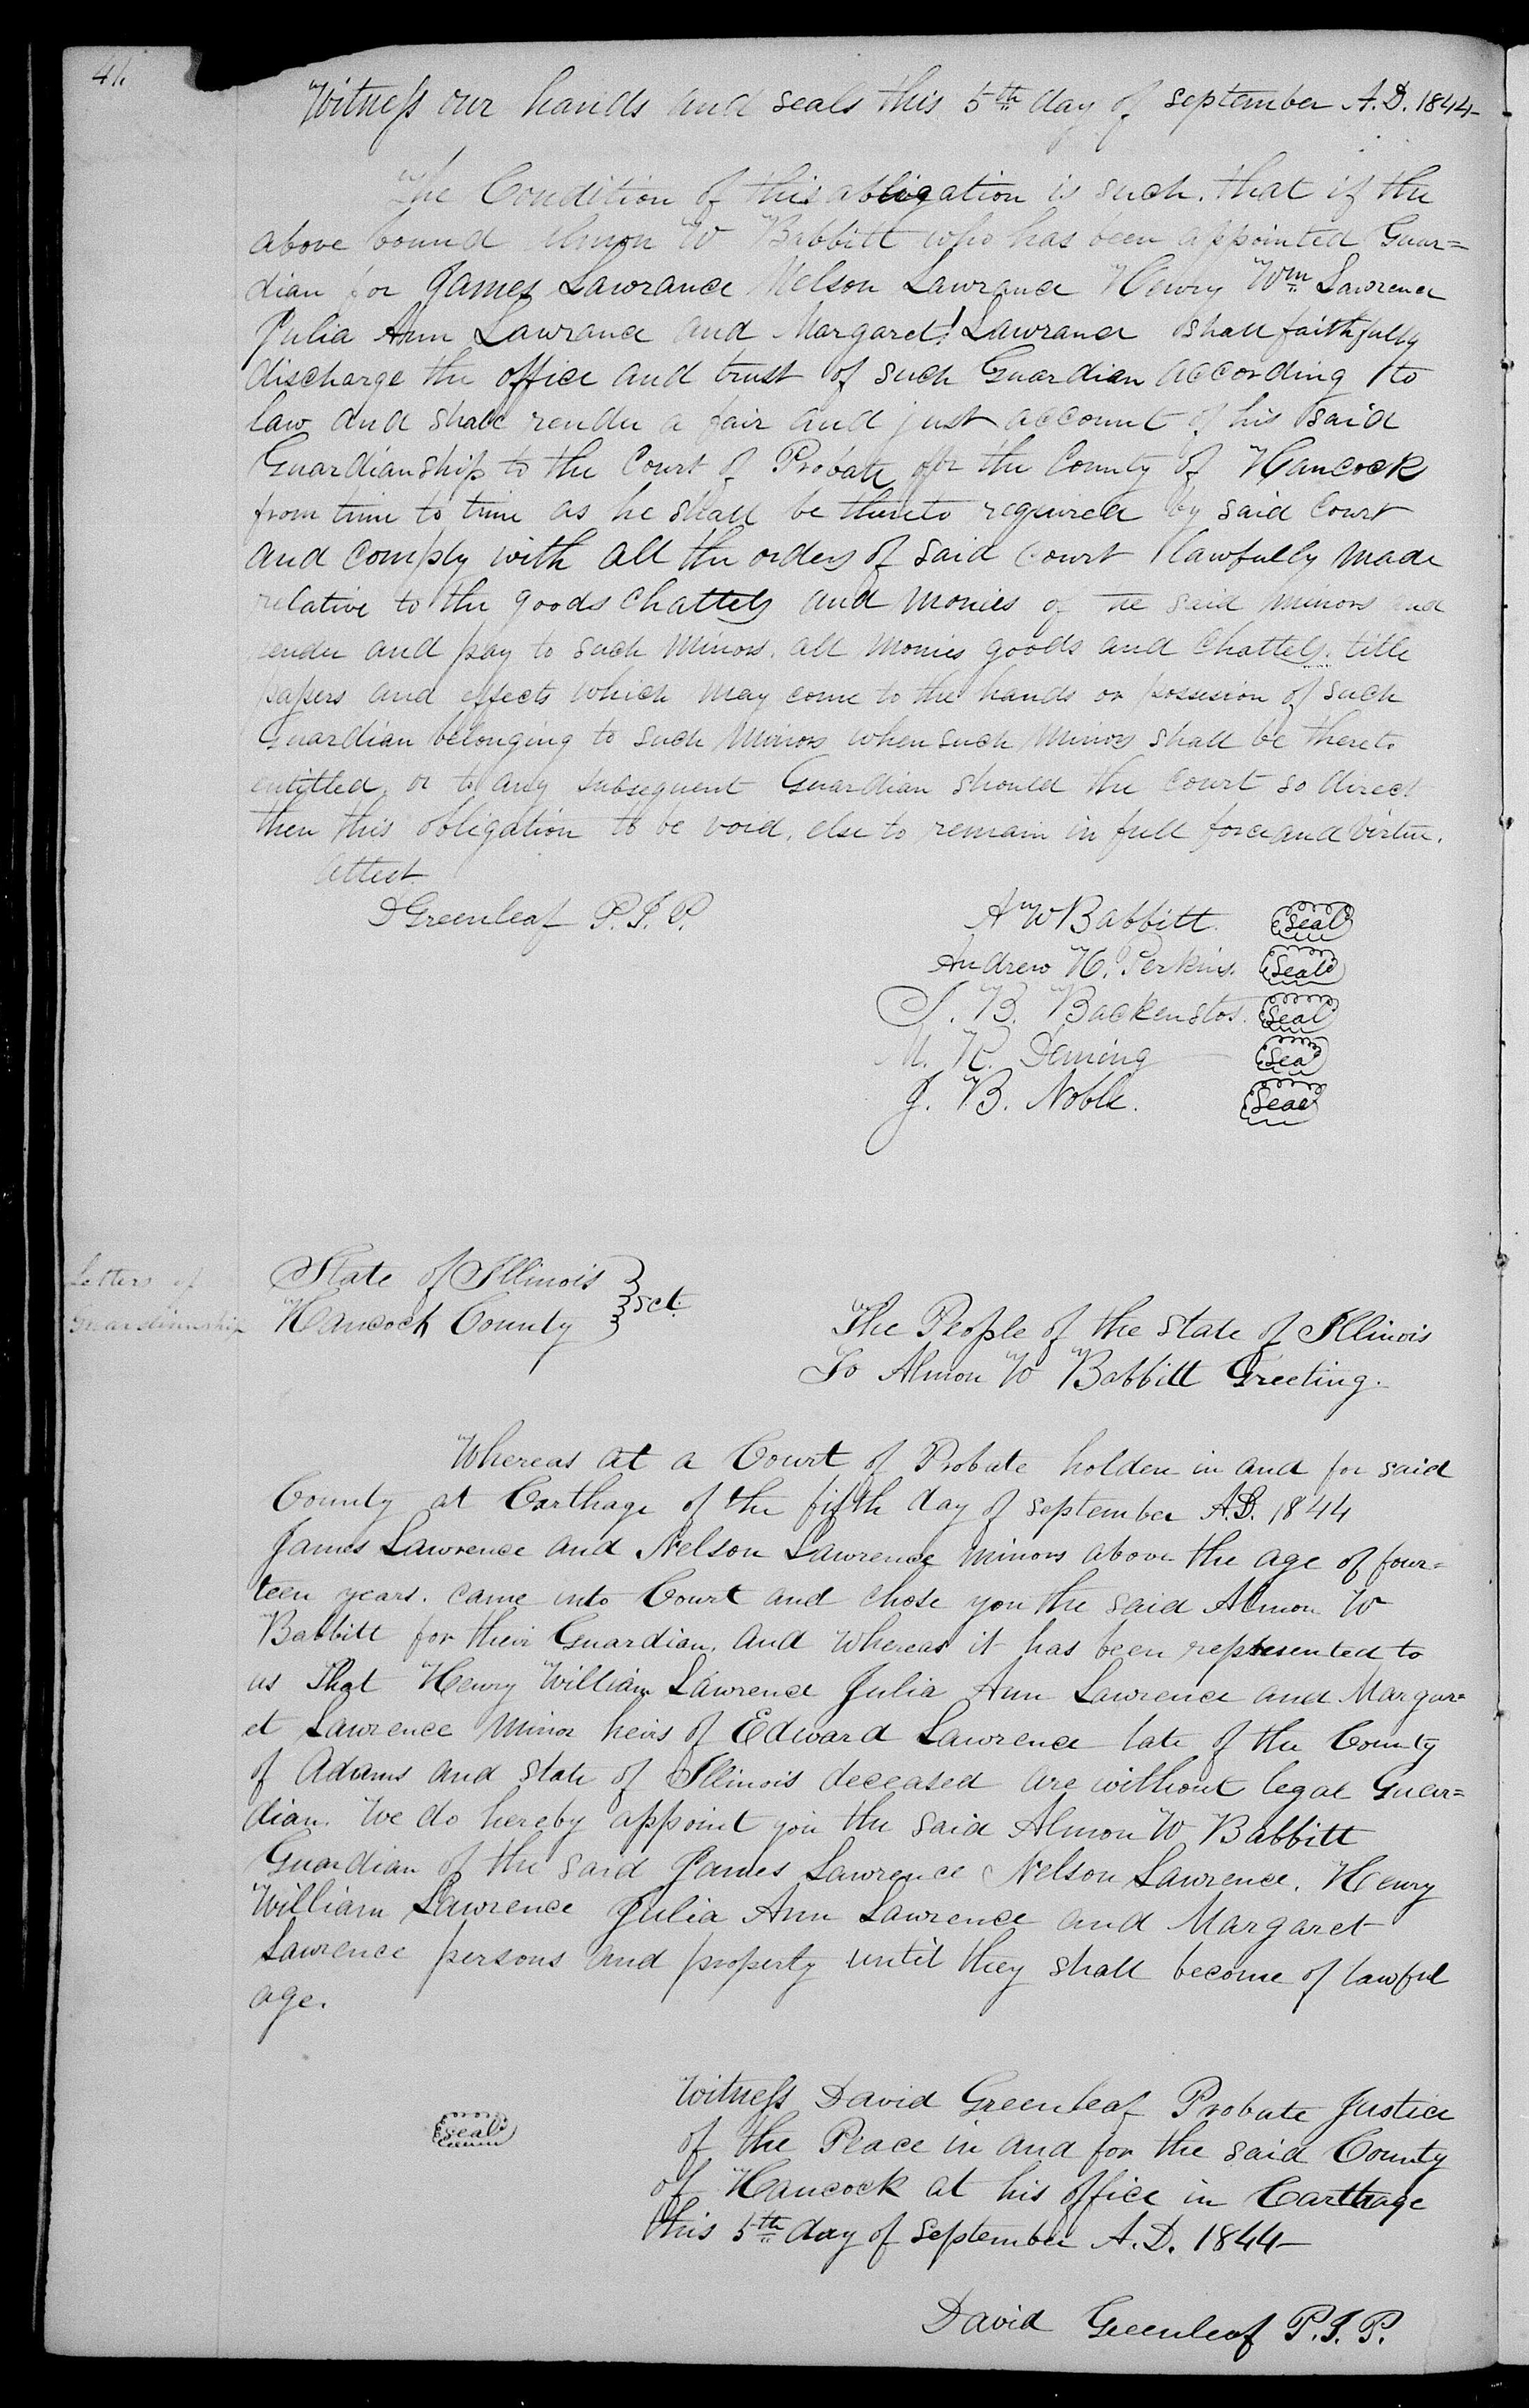 41.
Witness our hands and seals this 5th day of September A.D. 1844-
The Condition of this obligation is such. that if the
above bound Almon W Babbitt who has been appointed Guar=
dian for James Lawrance Nelson Lawrance Henry Wm Lawrence
Julia Ann Lawrance and Margaret Lawrance shall faithfully
discharge the office and trust of such Guardian according to
law and shall render a fair and just account of his said
Guardianship to the Court of Probate for the County of Hancock
from time to time as he shall be thereto required by said Court
and comply with all the orders of said Court lawfully made
relative to the goods chattels and monies of the said minors and
render and pay to such minors. all monies goods and chattels. title
papers and effects which may come to the hands or possesion of such
Guardian belonging to such minors when such minors shall be thereto
entitled, or to any subsequent Guardian should the court so direct
then this obligation to be void, else to remain in full force and virtue.
Attest
D Greenleaf P.J.P.
A W Babbitt. Seal
Andrew H. Perkins. Seal
J. B. Backenstos. Seal
M. R. Deming Seal
J. B. Noble. Seal
Letters of
Guardianship
State of Illinois
Hancock County } sct.
The People of the State of Illinois
To Almon W Babbitt Greeting.
Whereas at a Court of Probate holden in and for said
County at Carthage of the fifth day of September A.D. 1844
James Lawrence and Nelson Lawrence minors above the age of four=
teen years. came into Court and chose you the said Almon W
Babbitt for their Guardian. and whereas it has been represented to
us That Henry William Lawrence Julia Ann Lawrence and Margar=
et Lawrence minor heirs of Edward Lawrence late of the County
of Adams and State of Illinois deceased are without legal Guar=
dian. We do hereby appoint you the said Almon W Babbitt
Guardian of the said James Lawrence Nelson Lawrence. Henry
William Lawrence Julia Ann Lawrence and Margaret
Lawrence persons and property until they shall become of lawful
age.
seal
Witness David Greenleaf Probate Justice
of the Peace in and for the said County
of Hancock at his office in Carthage
this 5th day of September A.D. 1844-
David Greenleaf P.J.P.